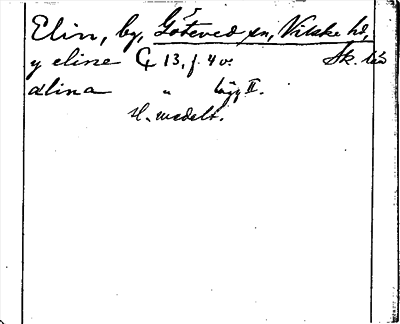 Elin, by, Göteved sn, Vilske hd,
y eline C 13, f. 4 v. Sk. län
alina " lägg II.
H. medelt.